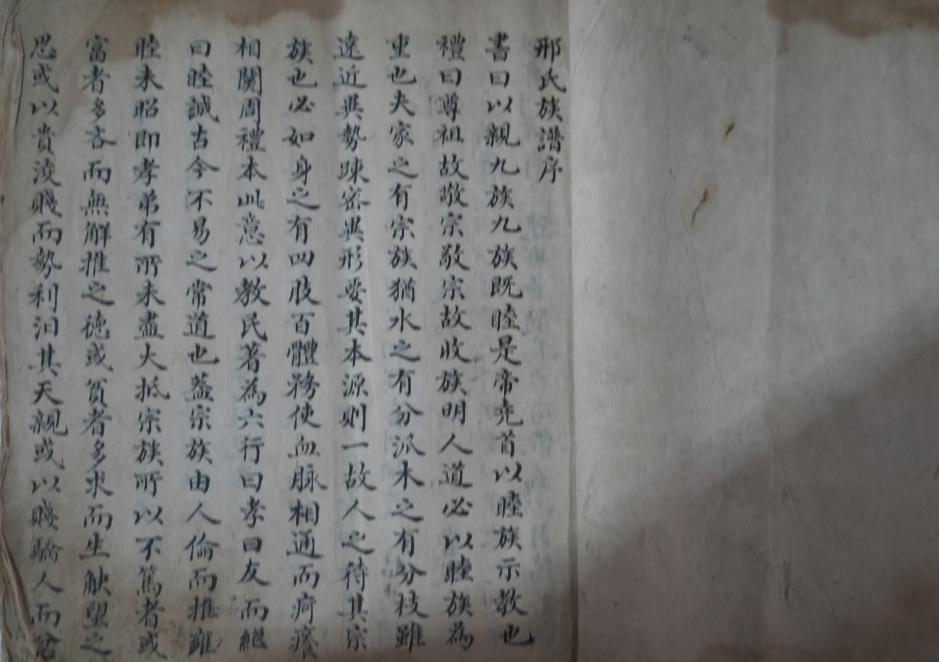 邢氏族譜序
書曰以親九族九族既睦是帝堯首以睦族示教也
禮曰尊祖故敬宗敬宗故收族明人道必以睦族為
重也夫家之有宗族猶水之有分派木之有分枝雖
遠近異勢踈宻異形要其本源則一故人之待其宗
族也必如身之有四肢百體務使血脉相通而疴癢
相関周禮本此意以教民著為六行曰孝曰友而繼
曰睦誠古今不易之常道也蓋宗族由人倫而推雍
睦未昭即孝弟有所未盡大抵宗族所以不篤者或
富者多吝而無解推之徳或貧者多求而生觖望之
思或以貴淩賤而勢利汩其天親或以賤驕人而忿